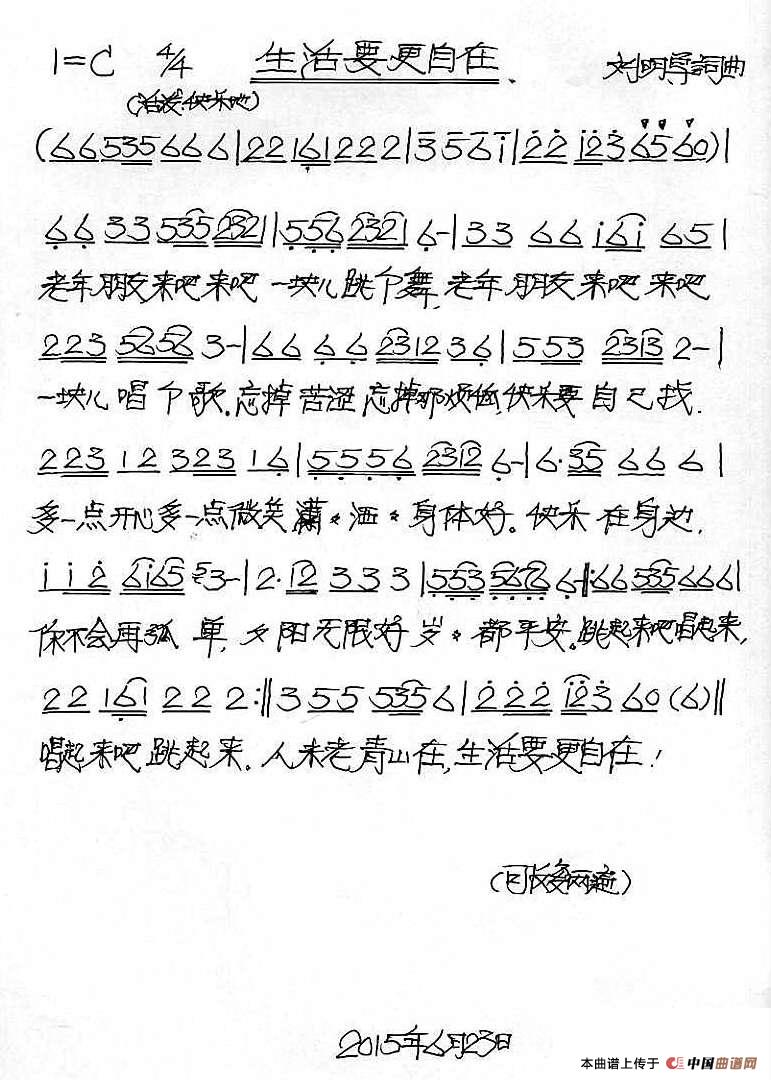 1=C 4/4 生活要更自在、 刘明导詞曲
(活泼 快乐地)
(6 6 535 6 6 6 | 2 2 161 2 2 2 | 3 5 6 i | 2 2 1 2 3 6 5 6 0) |
6 6 3 3 535 232 | 5 5 6 232 1 6 - | 3 3 6 6 i 6 i 6 5 |
老年朋友来吧来吧 一块儿跳个舞,老年朋友来吧来吧
2 2 3 5656 3 - | 6 6 6 6 2312 3 6 | 5 5 3 2313 2 - |
一块儿唱个歌.忘掉苦涩忘掉那烦恼,快乐要自己找.
2 2 3 1 2 3 2 3 1 6 | 5 5 5 6 2312 6 - | 6· 35 6 6 6 |
多一点开心多一点微笑潇洒身体好。快乐在身边,
i i 2 6i65 3 - | 2· 12 3 3 3 | 5 5 3 5676 6 - ‖: 6 6 535 6 6 6 |
你不会再孤单,夕阳无限好岁岁都平安。跳起来吧唱起来,
2 2 161 2 2 2 :‖ 3 5 5 535 6 | 2 2 2 12 3 6 0 (6) ‖
唱起来吧跳起来.人未老青山在,生活要更自在!
2015年6月23日
本曲谱上传于 中国曲谱网